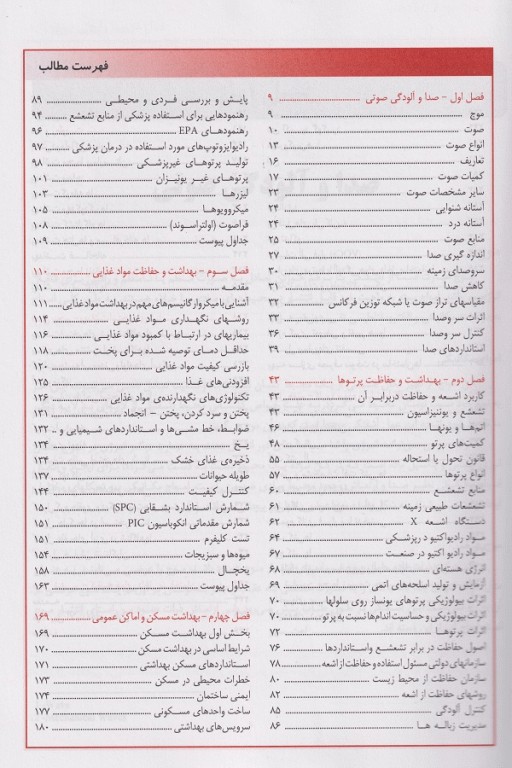 فهرست مطالب
فصل اول - صدا و آلودگی صوتی ۹
موج ۹
صوت ۱۰
انواع صوت ۱۳
تعاریف ۱۶
کمیات صوت ۱۷
سایر مشخصات صوت ۲۳
آستانه شنوایی ۲۴
آستانه درد ۲۴
منابع صوت ۲۵
اندازه گیری صدا ۲۷
سروصدای زمینه ۳۰
کاهش صدا ۳۱
مقیاسهای تراز صوت یا شبکه توزین فرکانس ۳۲
اثرات سر وصدا ۳۳
کنترل سر وصدا ۳۶
استانداردهای صدا ۳۹
فصل دوم - بهداشت و حفاظت پرتوها ۴۳
کاربرد اشعه و حفاظت دربرابر آن ۴۳
تشعشع و یونیزاسیون ۴۳
اتمها و یونها ۴۶
کمیت‌های پرتو ۴۸
قانون تحول یا استحاله ۵۵
انواع پرتوها ۵۷
منابع تشعشع ۶۰
تشعشعات طبیعی زمینه ۶۱
دستگاه اشعه X ۶۲
مواد رادیواکتیو د ریزشکی ۶۴
مواد رادیو اکتیو در صنعت ۶۷
انرژی هسته‌ای ۶۸
آزمایش و تولید اسلحه‌های اتمی ۶۹
اثرات بیولوژیکی پرتوهای یونساز روی سلولها ۷۰
اثرات بیولوژیکی و حساسیت اندام‌ها نسبت به پرتو ۷۰
اثرات پرتوها ۷۲
اصول حفاظت در برابر تشعشع واستانداردها ۷۶
سازمانهای دولتی مسئول استفاده و حفاظت از اشعه ۷۸
سازمان حفاظت از محیط زیست ۸۰
روشهای حفاظت از اشعه ۸۲
کنترل آلودگی ۸۵
مدیریت زباله ها ۸۶
پایش و بررسی فردی و محیطی ۸۹
رهنمودهایی برای استفاده پزشکی از منابع تشعشع ۹۴
رهنمودهای EPA ۹۶
رادیوایزوتوپ‌های مورد استفاده در درمان پزشکی ۹۷
تولید پرتوهای غیرپزشکی ۹۸
پرتوهای غیر یونیزان ۱۰۱
لیزرها ۱۰۳
میکروویوها ۱۰۵
فراصوت (اولتراسوند) ۱۰۸
جداول پیوست ۱۰۹
فصل سوم - بهداشت و حفاظت مواد غذایی ۱۱۰
مقدمه ۱۱۰
آشنایی با میکروارگانیسم‌های مهم در بهداشت مواد غذایی ۱۱۱
روشهای نگهداری مواد غذایی ۱۱۴
بیماریهای در ارتباط با کمبود مواد غذایی ۱۱۶
حداقل دمای توصیه شده برای پخت ۱۱۸
بازرسی کیفیت مواد غذایی ۱۲۰
افزودنی‌های غذا ۱۲۵
تکنولوژی‌های نگهدارنده‌ی مواد غذایی ۱۲۶
پختن و سرد کردن، پختن - انجماد ۱۳۱
ضوابط، خط مشی‌ها و استانداردهای شیمیایی و ۱۳۲
یخ ۱۳۴
ذخیره‌ی غذای خشک ۱۳۴
طویله حیوانات ۱۳۷
کنترل کیفیت ۱۴۴
شمارش استاندارد بشقابی (SPC) ۱۵۰
شمارش مقدماتی انکوباسیون PIC ۱۵۱
تست کلیفرم ۱۵۱
میوه‌ها و سبزیجات ۱۵۴
یخچال ۱۵۸
جداول پیوست ۱۶۳
فصل چهارم - بهداشت مسکن و اماکن عمومی ۱۶۹
بخش اول بهداشت مسکن ۱۶۹
شرایط اساسی در بهداشت مسکن ۱۷۰
استانداردهای مسکن بهداشتی ۱۷۱
خطرات محیطی در مسکن ۱۷۳
ایمنی ساختمان ۱۷۴
ساخت واحدهای مسکونی ۱۷۷
سرویس‌های بهداشتی ۱۸۰